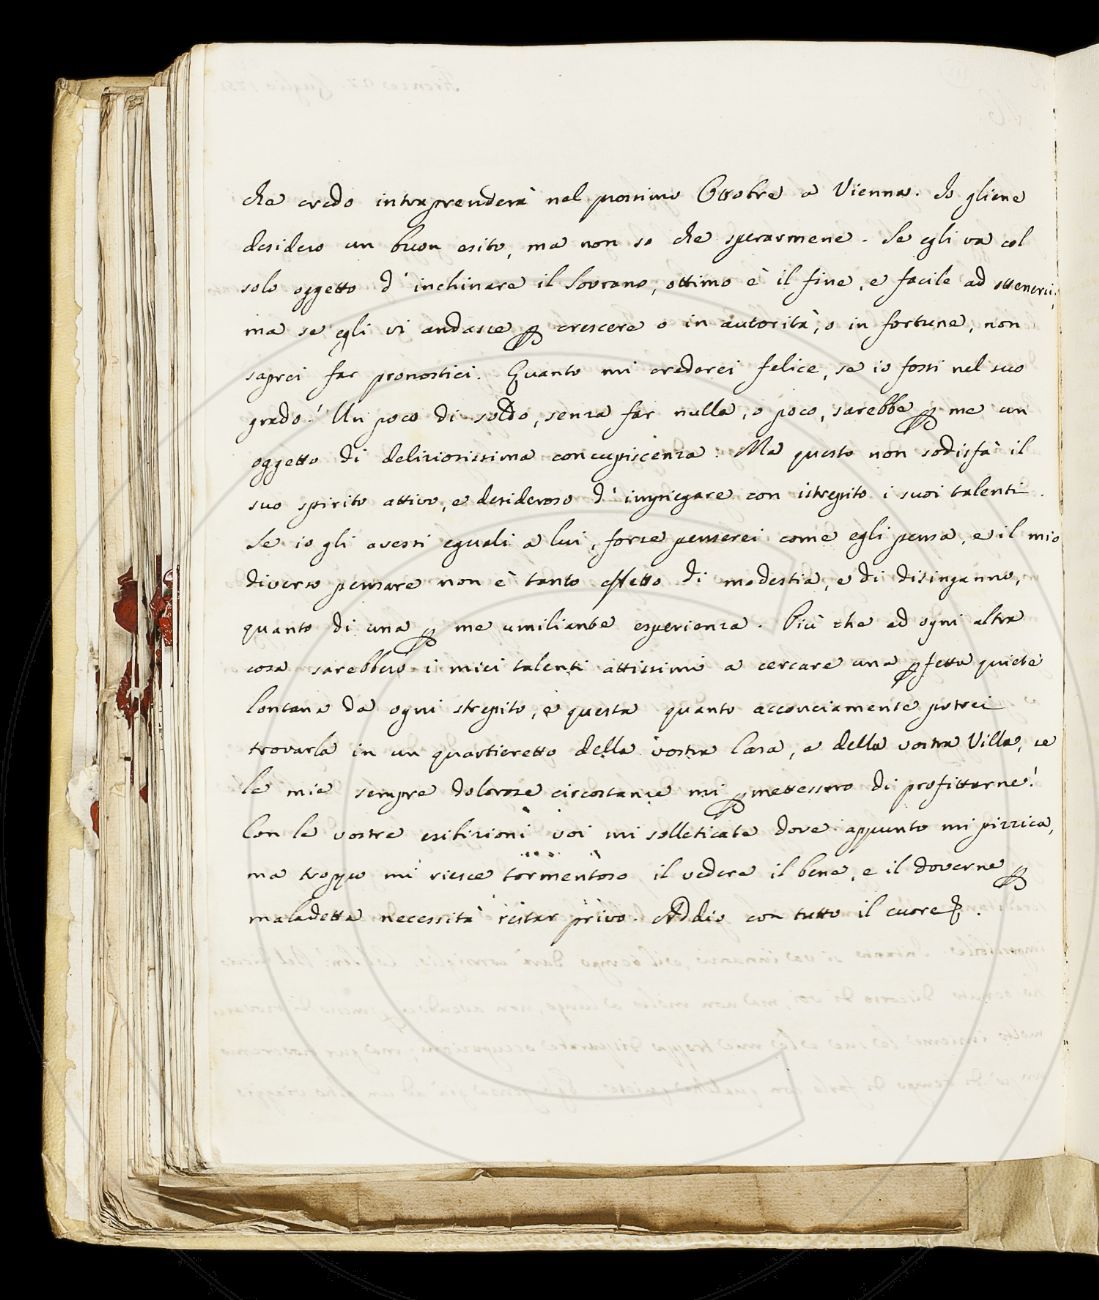 che credo intraprenderà nel prossimo Ottobre a Vienna. Io gliene
desidero un buon esito, ma non so che sperarmene. Se egli va col
solo oggetto d'inchinare il Sovrano, ottimo è il fine, e facile ad ottenersi;
ma se egli vi andasse ꝑ crescere o in autorità, o in fortune, non
saprei far pronostici. Quanto mi crederei felice, se io fossi nel suo
grado! Un poco di soldo, senza far nulla, o poco, sarebbe ꝑ me un
oggetto di deliziosissima concupiscenza: Ma questo non sodisfà il
suo spirito attivo, e desideroso d'impiegare con istrepito i suoi talenti.
Se io gli avessi eguali a lui, forse penserei come egli pensa, e il mio
diverso pensare non è tanto effetto di modestia, e di disinganno,
quanto di una ꝑ me umiliante esperienza. Più che ad ogni altra
cosa sarebbero i miei talenti attissimi a cercare una ꝑfetta quiete
lontana da ogni strepito, e questa quanto acconciamente potrei
trovarla in un quartieretto della vostra Casa, e della vostra Villa, se
le mie sempre dolorose circostanze mi ꝑmettessero di profittarne!
Con le vostre esibizioni voi mi solleticate dove appunto mi pizzica,
ma troppo mi riesce tormentoso il vedere il bene, e il doverne ꝑ
maladetta necessità restar privo. Addio con tutto il cuore.